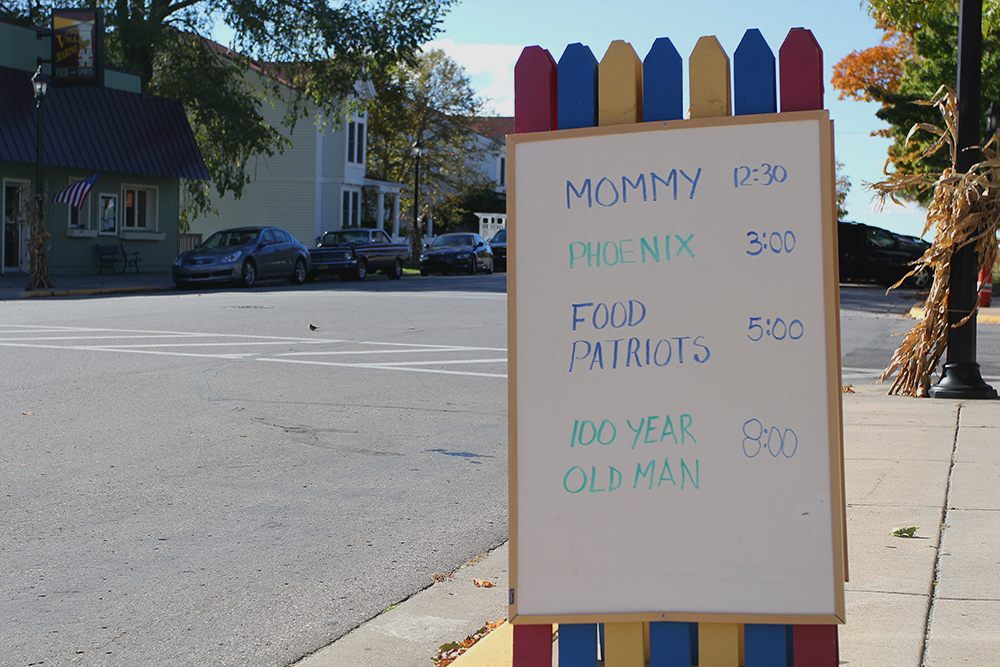 MOMMY 12:30
PHOENIX 3:00
FOOD
PATRIOTS 5:00
100 YEAR
OLD MAN 8:00